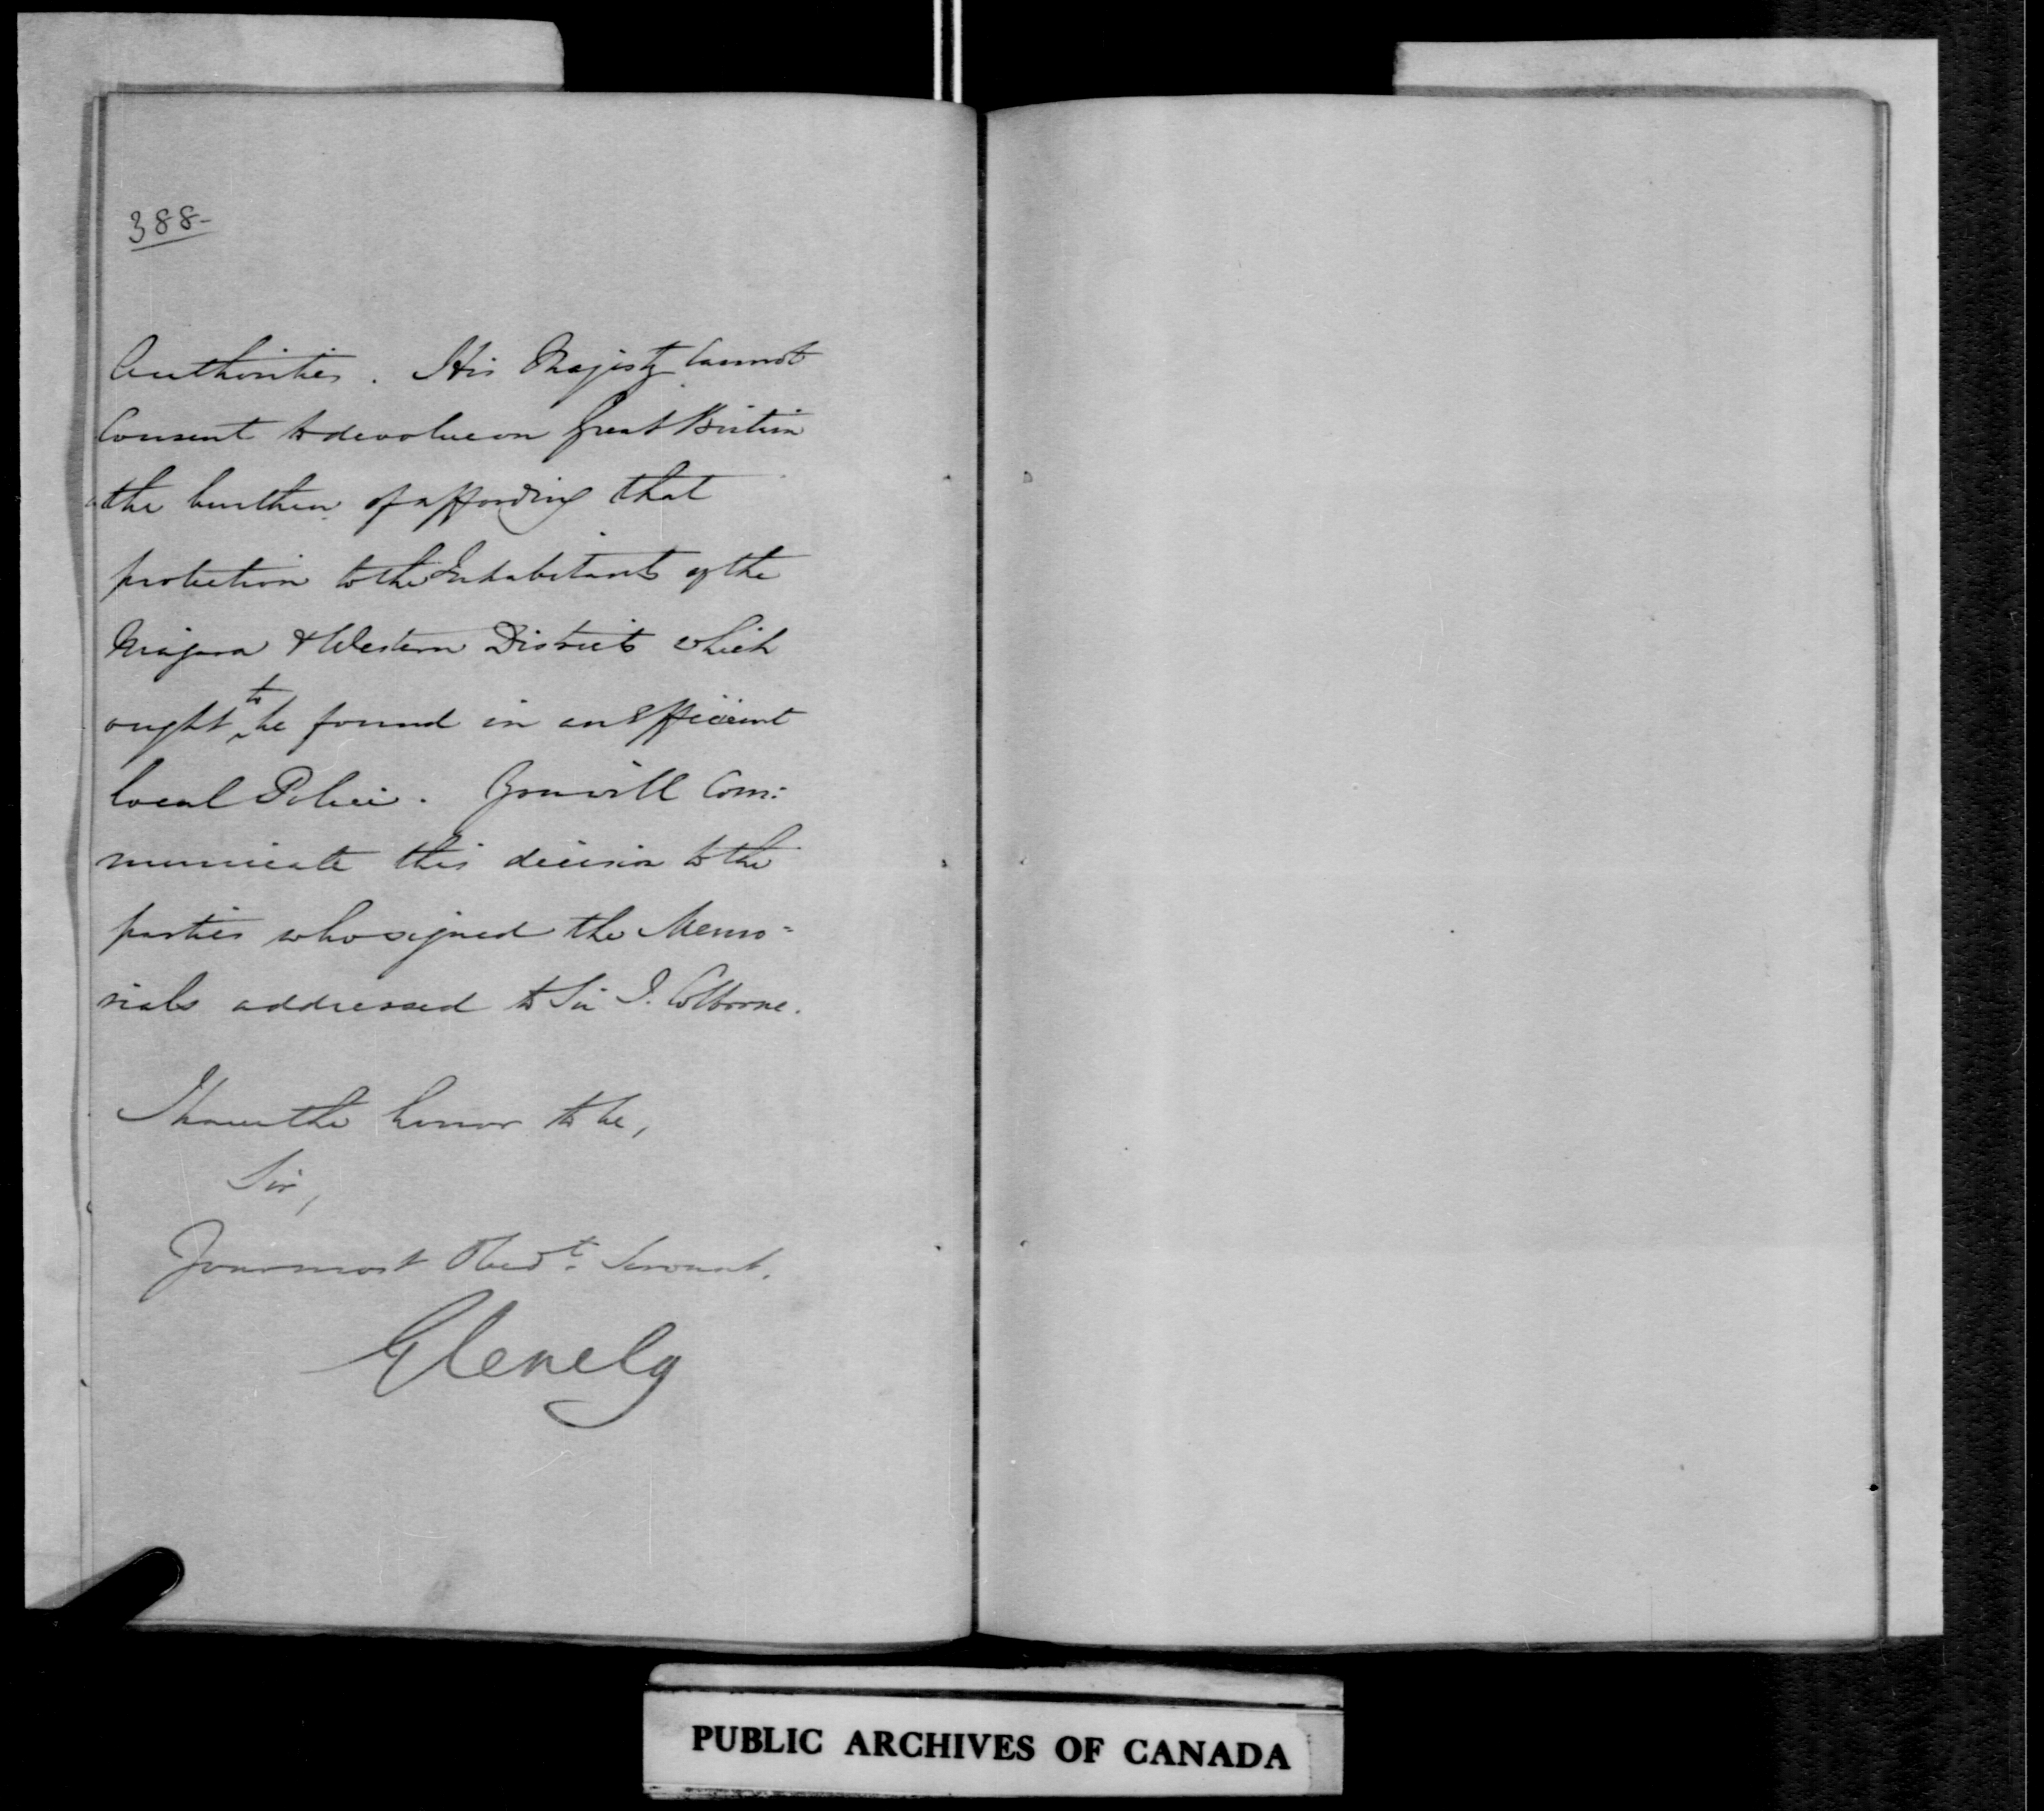 388-
Authorities. His Majesty cannot
Consent to devolve on Great Britain
the burthen of affording that
protection to the Inhabitants of the
Niagara & Western Districts which
ought to be found in an Efficient
local Police. You will Com:
municate this decision to the
parties who signed the Memo=
rials addressed to Sir J. Colborne.
I have the honor to be,
Sir,
Your most Obedt. Servant.
Glenelg
PUBLIC ARCHIVES OF CANADA